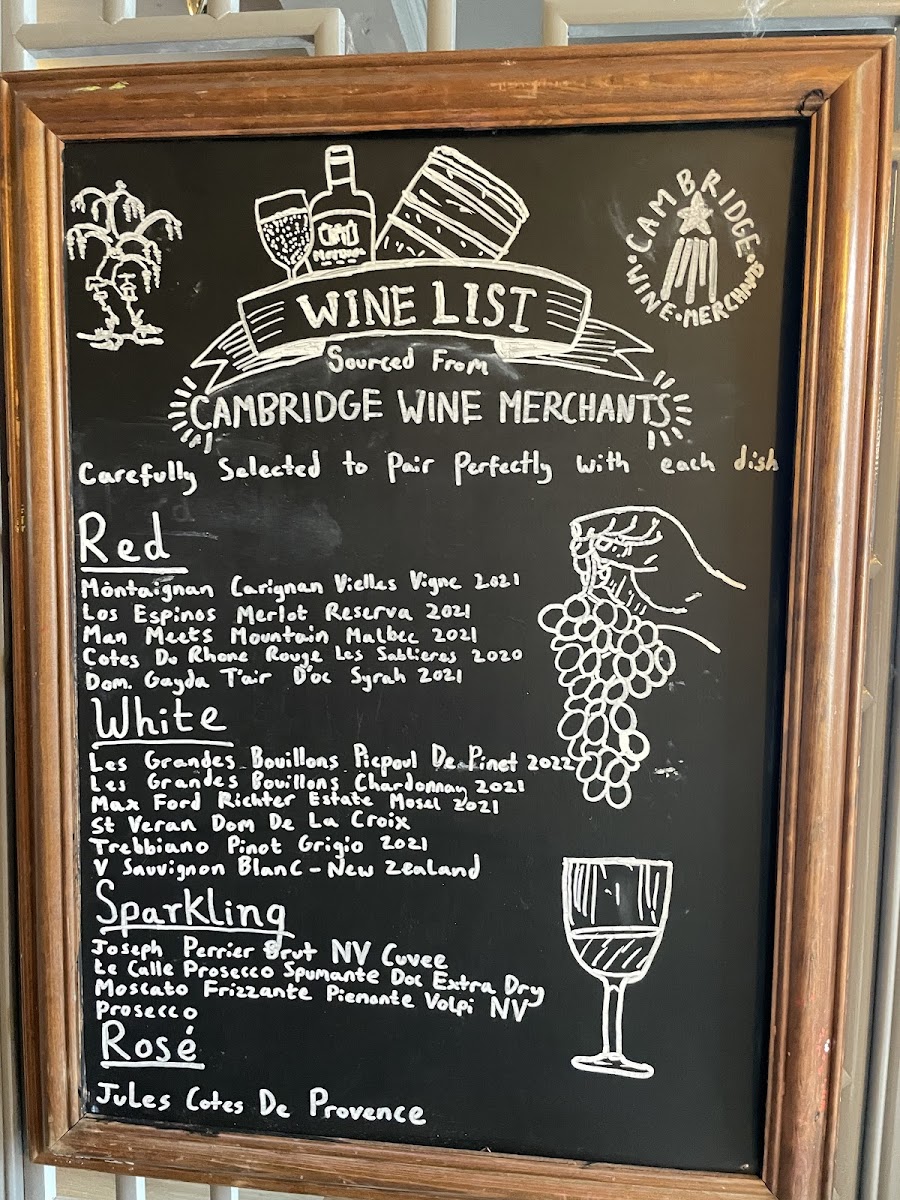 WINE LIST
CAMBRIDGE
WINE • MERCHANTS
Sourced From
CAMBRIDGE WINE MERCHANTS
Carefully Selected to Pair Perfectly with each dish
Red
Montaignan Carignan Vielles Vigne 2021
Los Espinos Merlot Reserva 2021
Man Meets Mountain Malbec 2021
Cotes Du Rhone Rouge Les Sablieres 2020
Dom. Gayda T'air D'oc Syrah 2021
White
Les Grandes Bouillons Picpoul De Pinet 2022
Les Grandes Bouillons Chardonnay 2021
Max Ford Richter Estate Mosel 2021
St Veran Dom De La Croix
Trebbiano Pinot Grigio 2021
V Sauvignon Blanc - New Zealand
Sparkling
Joseph Perrier Brut NV Cuvee
Le Calle Prosecco Spumante Doc Extra Dry
Moscato Frizzante Piemonte Volpi NV
Prosecco
Rosé
Jules Cotes De Provence